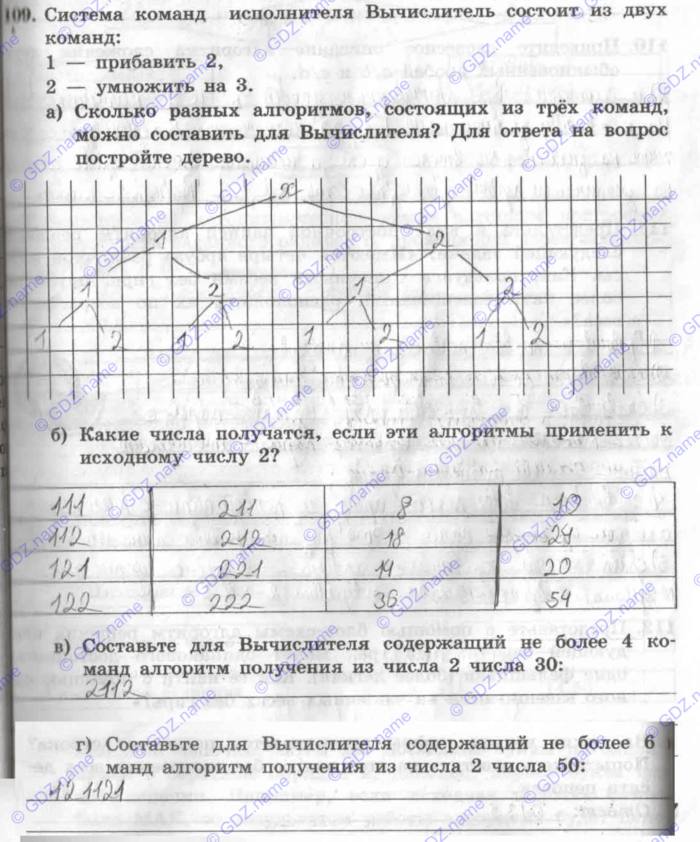 109. Система команд исполнителя Вычислитель состоит из двух
команд:
1 — прибавить 2,
2 — умножить на 3.
а) Сколько разных алгоритмов, состоящих из трёх команд,
можно составить для Вычислителя? Для ответа на вопрос
постройте дерево.
x
1 2
1 2 1 2
1 2 1 2 1 2 1 2
б) Какие числа получатся, если эти алгоритмы применить к
исходному числу 2?
111 211 8 10
112 212 18 24
121 221 14 20
122 222 36 54
в) Составьте для Вычислителя содержащий не более 4 ко-
манд алгоритм получения из числа 2 числа 30:
2112
г) Составьте для Вычислителя содержащий не более 6
манд алгоритм получения из числа 2 числа 50:
121121
© GDZ.name